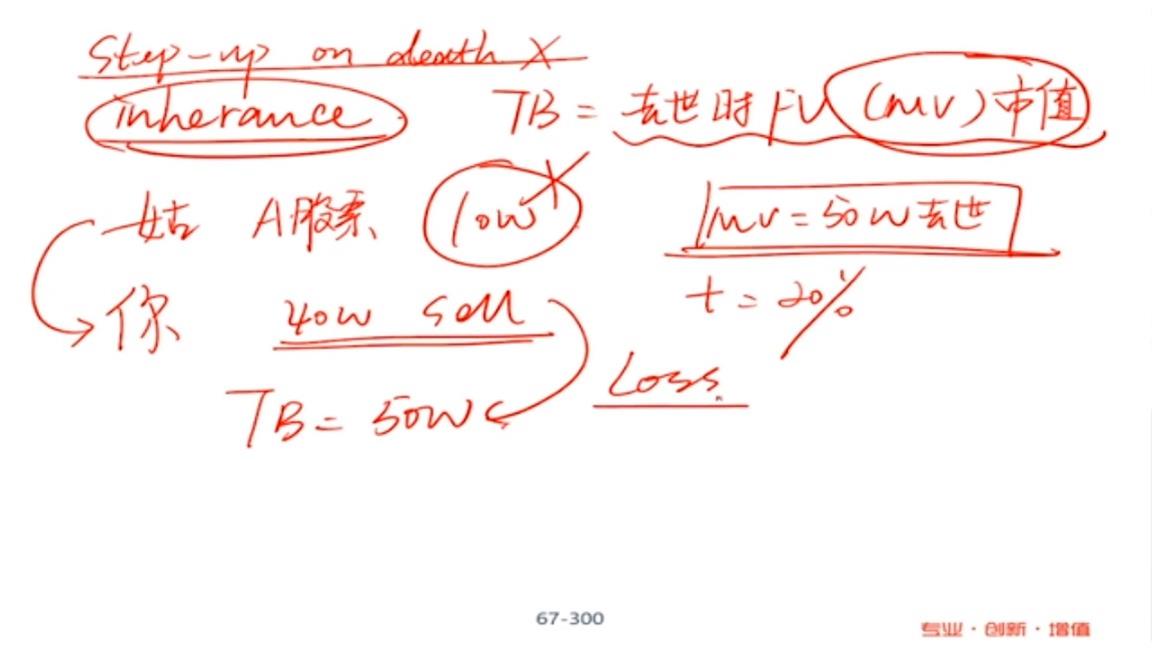 Step-up on death X
inherance TB = 去世时 FV (mv) 市值
姑 A股票 10w mv = 50w 去世
t = 20%
你 40w sell
Loss
TB = 50w
67-300
专业·创新·增值